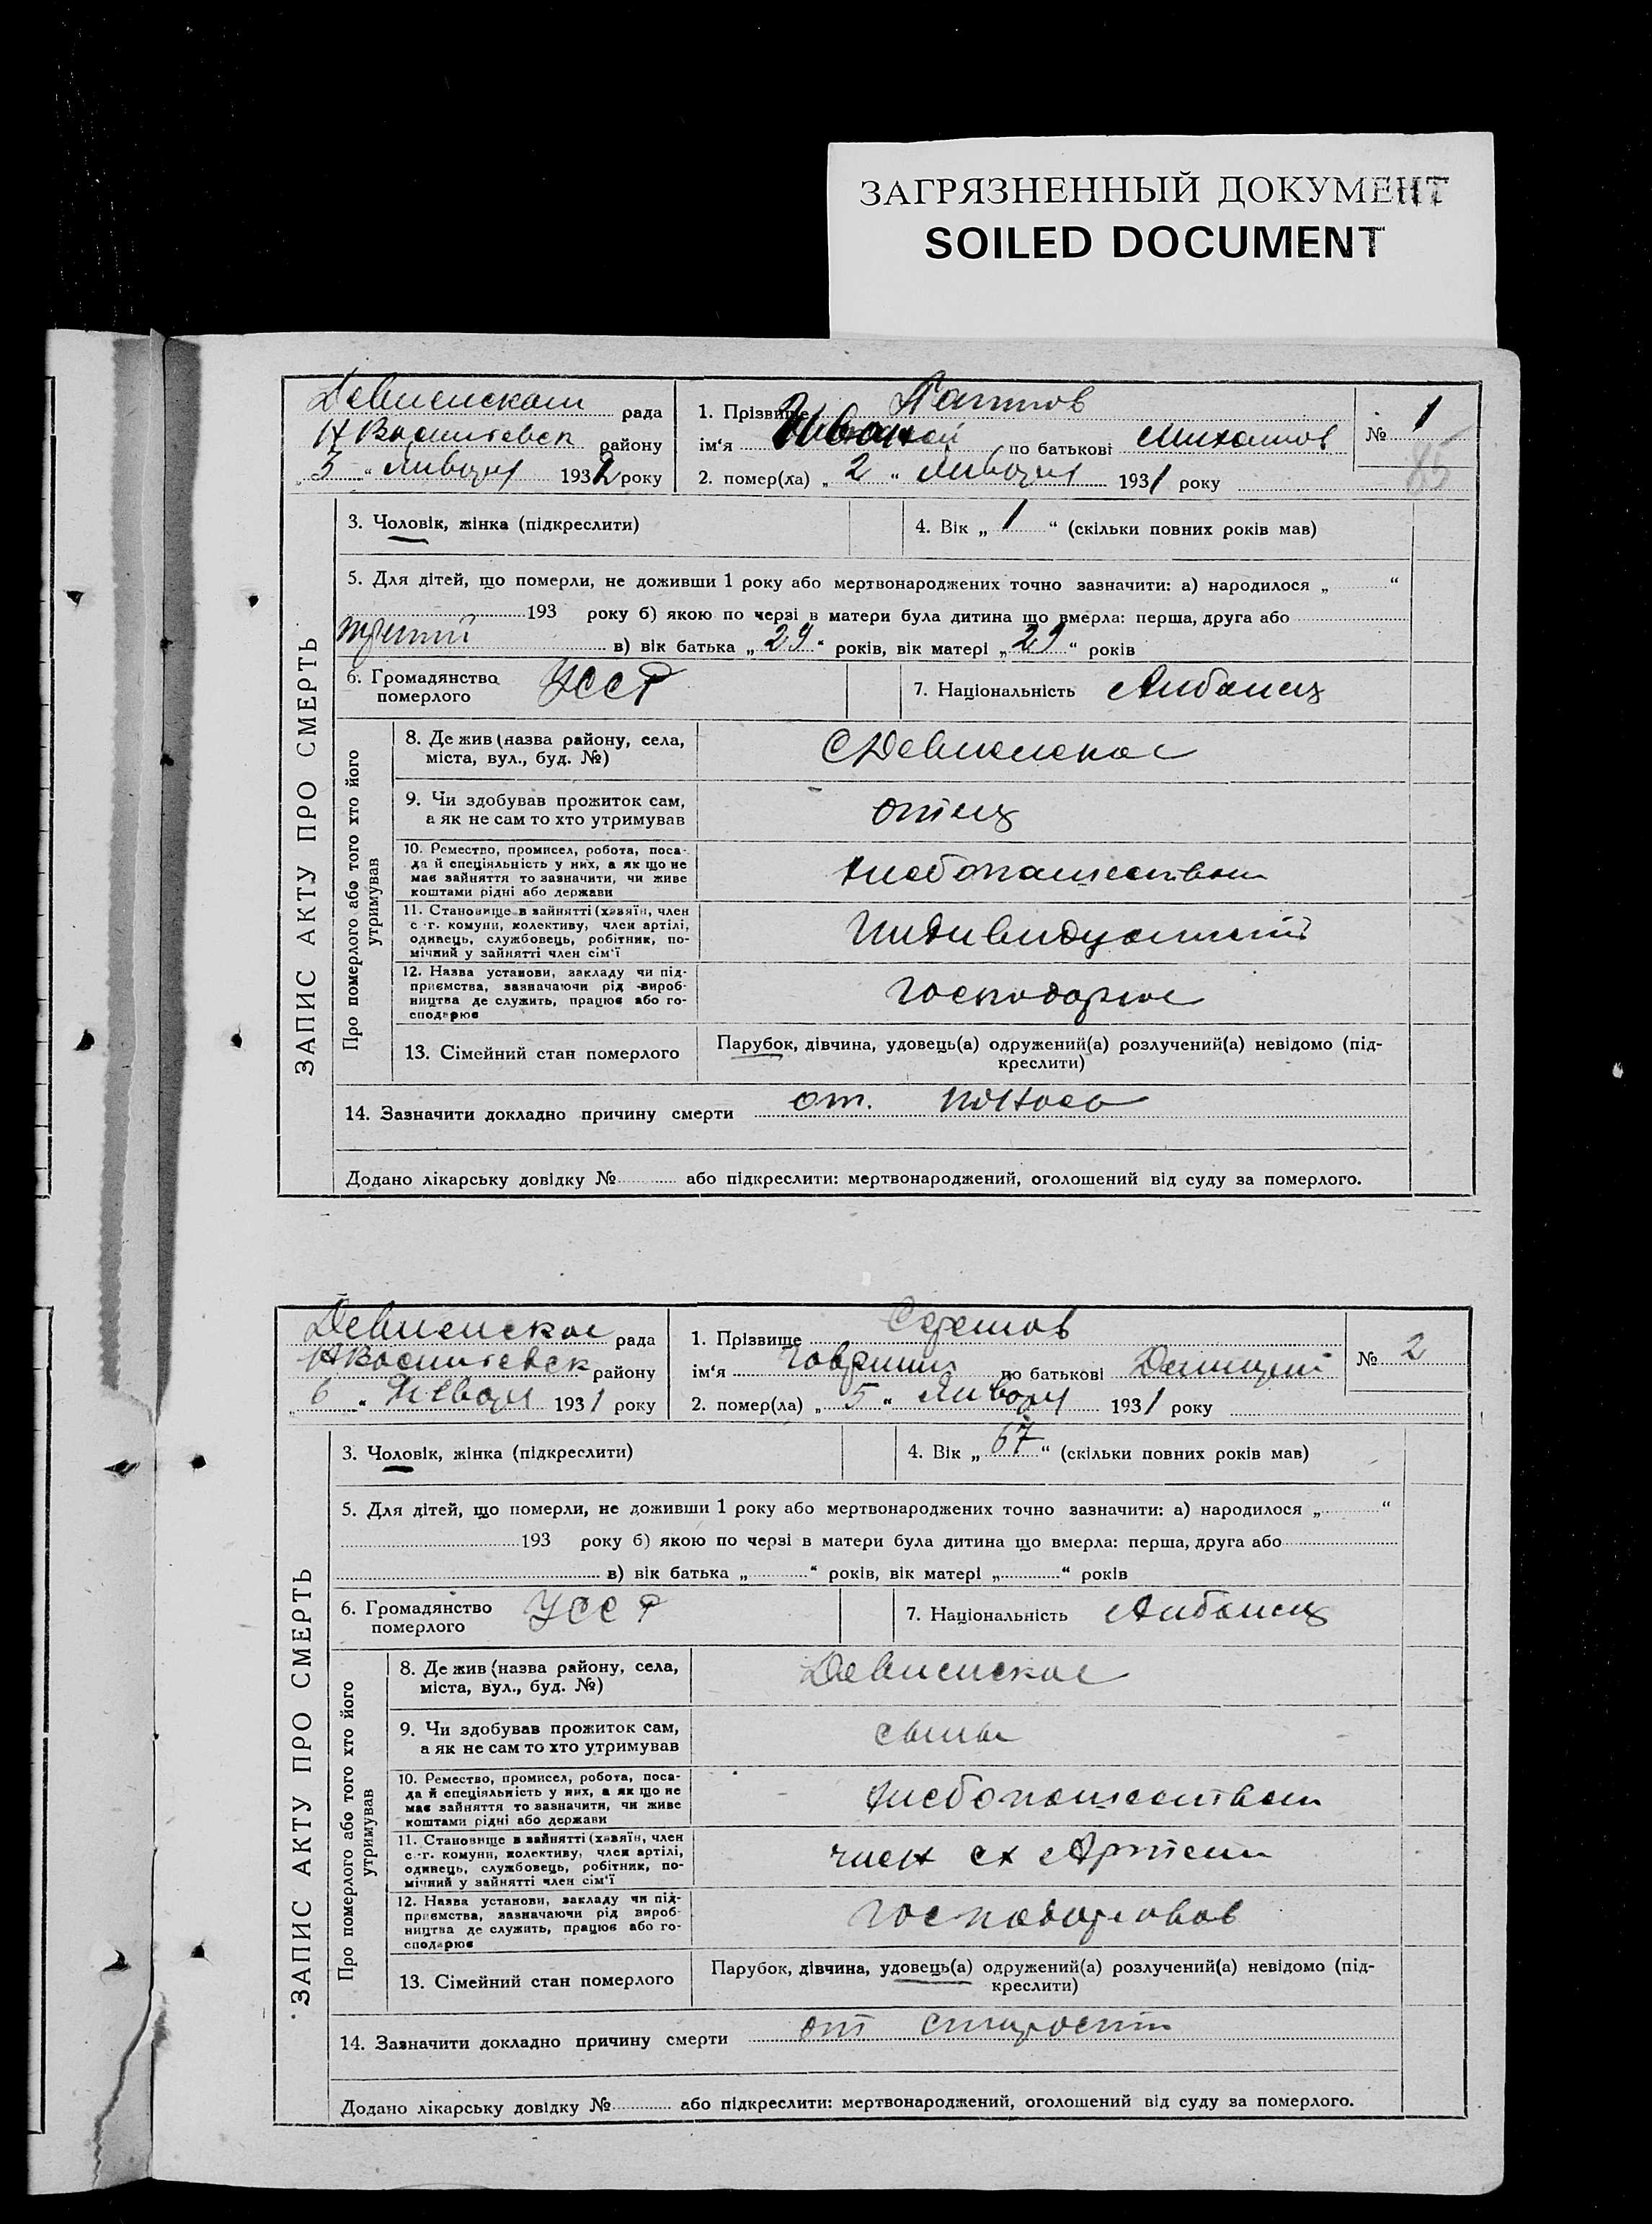 ЗАГРЯЗНЕННЫЙ ДОКУМЕНТ
SOILED DOCUMENT
Девненская рада
Н Васильевск району
„ 3 “ Января 1932 року
1. Прізвище Паплов
ім‘я Иван по батькові Михайлов
2. помер(ла) „ 2 “ Января 1931 року
№ 1
85
ЗАПИС АКТУ ПРО СМЕРТЬ
3. Чоловік, жінка (підкреслити)
4. Вік „ 1 “ (скільки повних років мав)
5. Для дітей, що померли, не доживши 1 року або мертвонароджених точно зазначити: а) народилося „ “
193 року б) якою по черзі в матери була дитина що вмерла: перша, друга або
третий в) вік батька „ 29 “ років, вік матері „ 29 “ років
6. Громадянство
померлого УССР
7. Національність Албанец
Про померлого або того хто його
утримував
8. Де жив (назва району, села,
міста, вул., буд. №)
С Девненское
9. Чи здобував прожиток сам,
а як не сам то хто утримував
отец
10. Ремество, промисел, робота, поса-
да й спеціяльність у них, а як що не
має зайняття то зазначити, чи живе
коштами рідні або держави
хлебопашеством
11. Становище в зайнятті (хазяїн, член
с.-г. комуни, колективу, член артілі,
одинець, службовець, робітник, по-
мічний у зайнятті член сім‘ї
Индивидуальний
12. Назва установи, закладу чи під-
приємства, зазначаючи рід вироб-
ництва де служить, працює або го-
сподарює
господарює
13. Сімейний стан померлого
Парубок, дівчина, удовець(а) одружений(а) розлучений(а) невідомо (під-
креслити)
14. Зазначити докладно причину смерти от. поноса
Додано лікарську довідку № або підкреслити: мертвонароджений, оголошений від суду за померлого.
Девненское рада
Н Васильевск району
„ 6 “ Января 1931 року
1. Прізвище
ім‘я Гаврилий по батькові
2. помер(ла) „ 5 “ Января 1931 року
№ 2
ЗАПИС АКТУ ПРО СМЕРТЬ
3. Чоловік, жінка (підкреслити)
4. Вік „ 67 “ (скільки повних років мав)
5. Для дітей, що померли, не доживши 1 року або мертвонароджених точно зазначити: а) народилося „ “
193 року б) якою по черзі в матери була дитина що вмерла: перша, друга або
в) вік батька „ “ років, вік матері „ “ років
6. Громадянство
померлого УССР
7. Національність Албанец
Про померлого або того хто його
утримував
8. Де жив (назва району, села,
міста, вул., буд. №)
Девненское
9. Чи здобував прожиток сам,
а як не сам то хто утримував
10. Ремество, промисел, робота, поса-
да й спеціяльність у них, а як що не
має зайняття то зазначити, чи живе
коштами рідні або держави
хлебопашеством
11. Становище в зайнятті (хазяїн, член
с.-г. комуни, колективу, член артілі,
одинець, службовець, робітник, по-
мічний у зайнятті член сім‘ї
член сх Артели
12. Назва установи, закладу чи під-
приємства, зазначаючи рід вироб-
ництва де служить, працює або го-
сподарює
господарював
13. Сімейний стан померлого
Парубок, дівчина, удовець(а) одружений(а) розлучений(а) невідомо (під-
креслити)
14. Зазначити докладно причину смерти от старости
Додано лікарську довідку № або підкреслити: мертвонароджений, оголошений від суду за померлого.